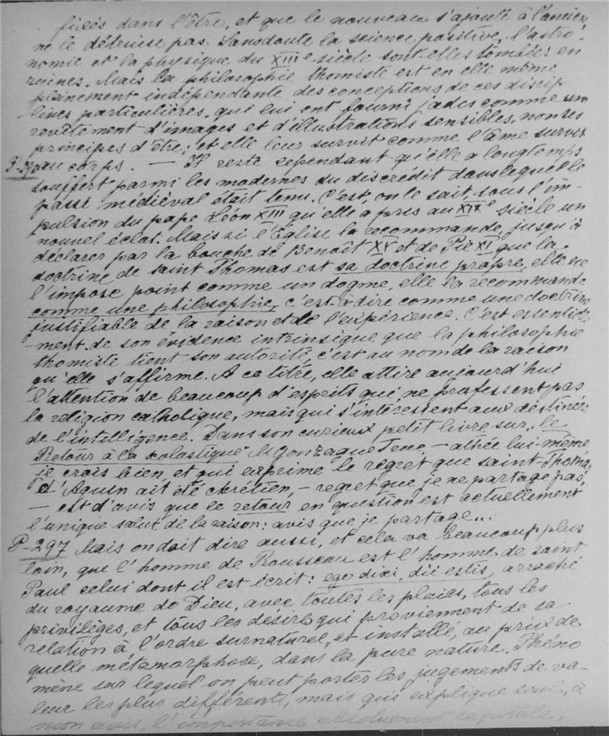 fixés dans l'être, et que le nouveau s'ajoute à l'ancien
ne le détruise pas. Sans doute la science positive, l'astro-
nomie et la physique du XIIIe siècle sont elles tombées en
ruines. Mais la philosophie thomiste est en elle même
pleinement indépendante des conceptions de ces discip
lines particulières, qui lui ont fourni jadis comme son
revêtement d'images et d'illustrations sensibles, non ses
principes d'être; et elle leur survit comme l'âme survit
au corps. — Il reste cependant qu'elle a longtemps
souffert parmi les modernes du discrédit dans lequel le
passé médiéval était tenu. C'est, on le sait, sous l'im-
pulsion du pape Léon XIII qu'elle a pris au XIXe siècle un
nouvel éclat. Mais si l'Église la recommande, jusqu'à
déclarer par la bouche de Benoît XV et de Pie XI que la
doctrine de saint Thomas est sa doctrine propre, elle ne
l'impose point comme un dogme, elle la recommande
comme une philosophie, c'est à dire comme une doctrine
justifiable de la raison et de l'expérience. C'est essentielle
-ment de son évidence intrinsèque que la philosophie
thomiste tient son autorité, c'est au nom de la raison
qu'elle s'affirme. A ce titre, elle attire aujourd'hui
l'attention de beaucoup d'esprits qui ne professent pas
la religion catholique, mais qui s'intéressent aux destinées
de l'intelligence. Dans son curieux petit livre sur le
Retour à la scolastique M. Gonzague Truc — athée lui-même
je crois bien, et qui exprime le regret que saint Thomas
d'Aquin ait été chrétien, — regret que je ne partage pas,
— est d'avis que ce retour en question est actuellement
l'unique salut de la raison: avis que je partage...
P-297 Mais on doit dire aussi, et cela va beaucoup plus
loin, que l'homme de Rousseau est l'homme de saint
Paul celui dont il est écrit: ego dixi, dii estis, arraché
du royaume de Dieu, avec toutes les plaies, tous les
privilèges, et tous les désirs qui proviennent de sa
relation à l'ordre surnaturel, et installé, au prix de
quelle métamorphose, dans la pure nature. Phéno
mène sur lequel on peut porter les jugements de va-
leur les plus différents, mais qui explique seul, à
mon avis, l'importance absolument capitale,